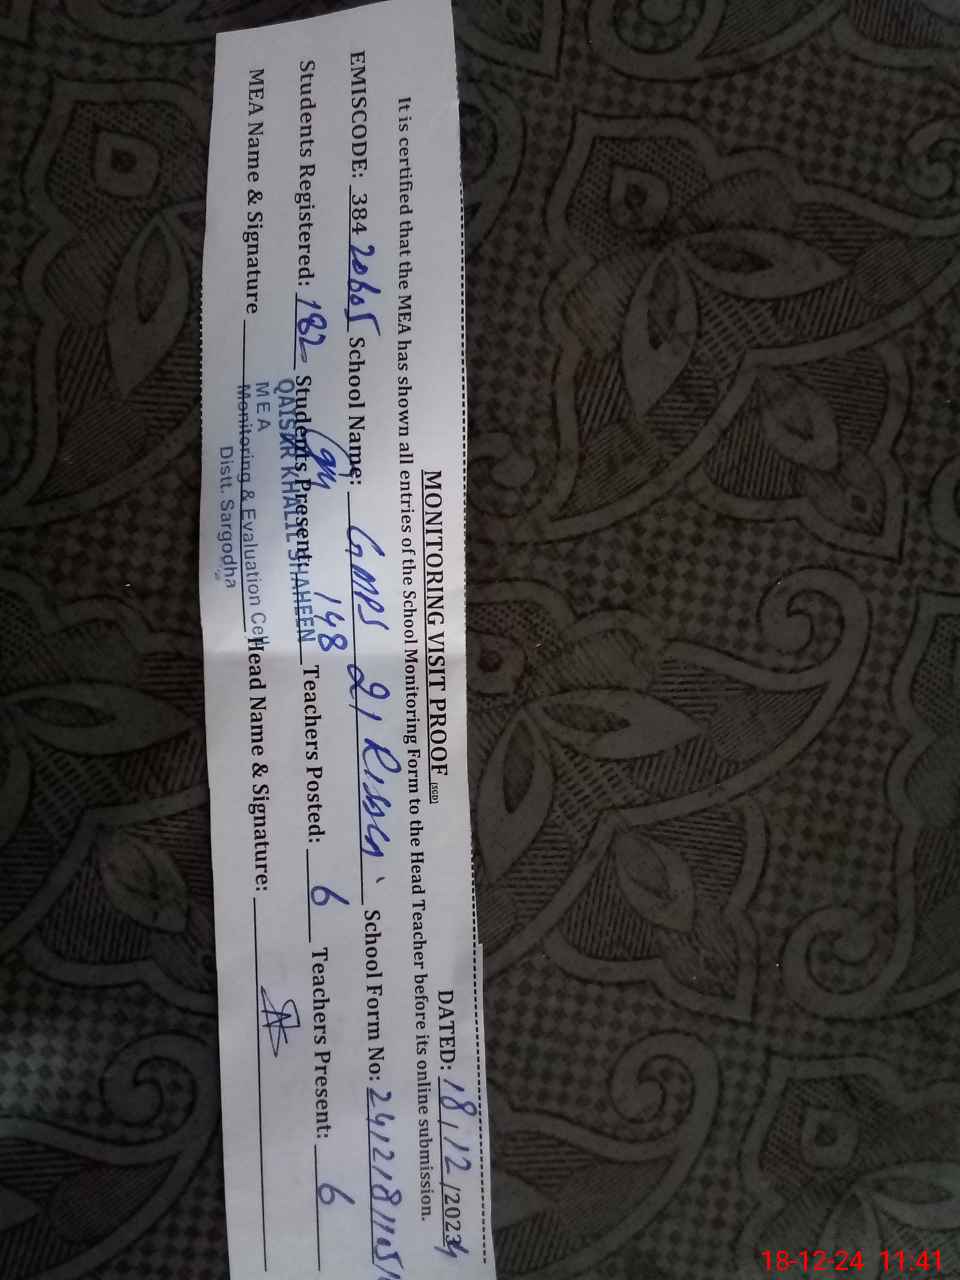 MONITORING VISIT PROOF (SGD) DATED: 18/12/2024
It is certified that the MEA has shown all entries of the School Monitoring Form to the Head Teacher before its online submission.
EMISCODE: 384 20605 School Name: GMPS 21 School Form No: 2412181105
Students Registered: 182 Students Present: 148 Teachers Posted: 6 Teachers Present: 6
MEA Name & Signature Head Name & Signature:
QAISAR KHALIL SHAHEEN
MEA
Monitoring & Evaluation Cell
Distt. Sargodha
18-12-24 11:41